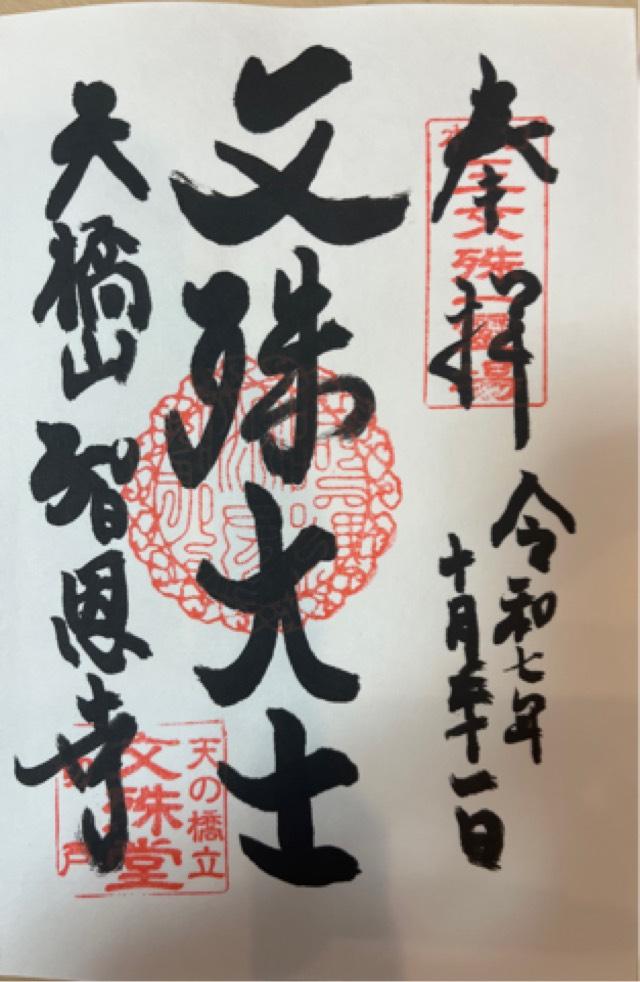 奉拝
令和七年
十月二十一日
文殊大士
天橋山 智恩寺
天の橋立
文殊堂